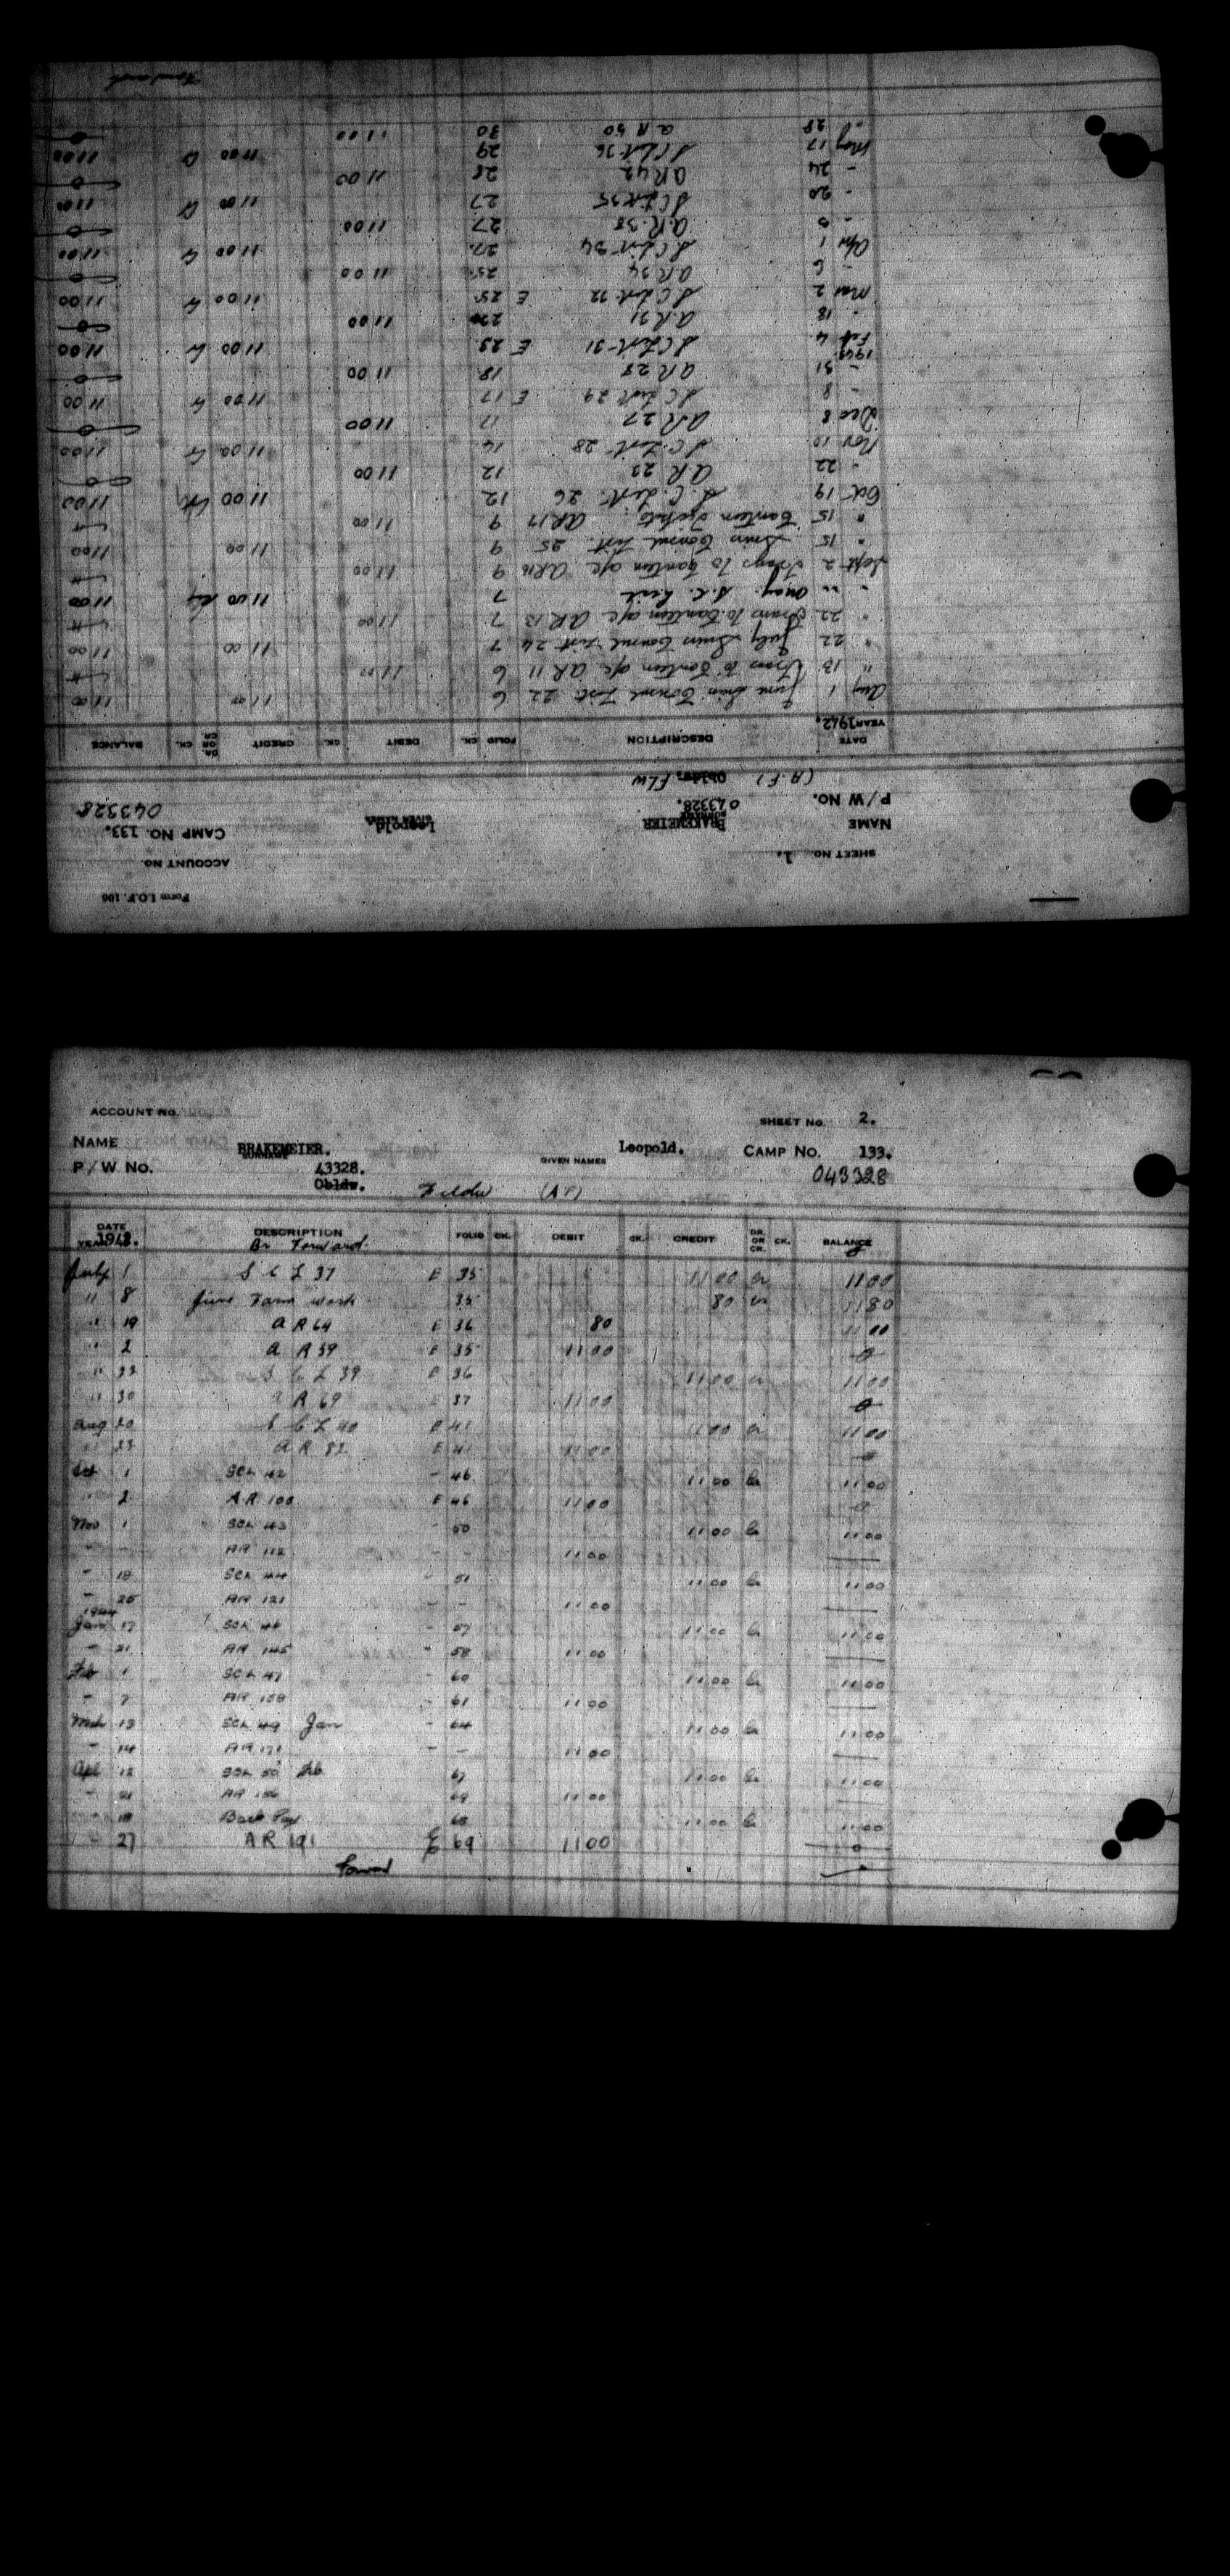 Form I.O.F. 106
ACCOUNT NO.
SHEET NO. 1.
NAME BRAKEMEIER Leopold. CAMP NO. 133.
SURNAME GIVEN NAMES
P/W NO. 043328. 043328
Obldw. FLW (A.F)
DATE DESCRIPTION FOLIO CK. DEBIT CK. CREDIT DR. OR CR. CK. BALANCE
YEAR 1942.
Aug 1 June Swiss Consul List 22 6 11 00 11 00
" 13 Trans to Canteen a/c AR 11 6 11 00
" 22 July Swiss Consul List 24 7 11 00 11 00
" 22 Trans to Canteen a/c AR 13 7 11 00
" " Aug. S.C. List 7 11 00 11 00
Sept 2 Trans to Canteen a/c AR 16 9 11 00
" 15 Swiss Consul List 25 9 11 00 11 00
" 15 Canteen Tickets AR 17 9 11 00
Oct 19 S.C. List 26 12 11 00 Cr 11 00
" 22 AR 23 12 11 00
Nov 10 S.C. List 28 14 11 00 Cr 11 00
Dec 8 AR 27 17 11 00 0
- 8 S C List 29 E 17 11 00 Cr 11 00
- 31 AR 28 18 11 00 0
1943
Feb 4 S C List 31 E 23 11 00 Cr 11 00
" 18 AR 31 11 00 0
Mar 2 S C List 32 E 25 11 00 Cr 11 00
- 6 AR 34 25 11 00 0
Apr 1 S C List 34 27 11 00 Cr 11 00
- 5 AR 38 27 11 00 0
- 20 S C List 35 27 11 00 Cr 11 00
- 24 AR 42 28 11 00 0
May 17 S C List 36 29 11 00 Cr 11 00
" 28 AR 50 30 11 00 0
Forward
ACCOUNT NO.
SHEET NO. 2.
NAME BRAKEMEIER. Leopold. CAMP NO. 133.
SURNAME GIVEN NAMES
P/W NO. 43328. 043328
Obldw. Feldw (AF)
DATE DESCRIPTION FOLIO CK. DEBIT CK. CREDIT DR. OR CR. CK. BALANCE
YEAR 1943. Br. Forward. 0
July 1 S C L 37 E 35 11 00 Cr 11 00
" 8 June Farm work 35 80 Cr 11 80
" 19 AR 64 E 36 80 11 00
" 2 AR 59 E 35 11 00 0
" 23 S C L 39 E 36 11 00 Cr 11 00
" 30 AR 69 E 37 11 00 0
Aug 20 S C L 40 E 41 11 00 Cr 11 00
" 23 AR 82 E 41 11 00 0
Oct 1 SCL 42 - 46 11 00 Cr 11 00
" 2 AR 100 E 46 11 00 0
Nov 1 SCL 43 - 50 11 00 Cr 11 00
- - AR 112 - - 11 00
- 18 SCL 44 - 51 11 00 Cr 11 00
- 25 AR 121 - - 11 00
1944
Jan 17 SCL 46 - 57 11 00 Cr 11 00
- 21 AR 145 - 58 11 00
Feb 1 SCL 47 - 60 11 00 Cr 11 00
- 7 AR 158 - 61 11 00
Mch 13 SCL 49 Jan - 64 11 00 Cr 11 00
- 14 AR 171 - - 11 00
Apl 12 SCL 50 Feb 67 11 00 Cr 11 00
- 21 AR 186 69 11 00
18 Back Pay 68 11 00 Cr 11 00
- 27 AR 191 E 69 11 00 0
Forward